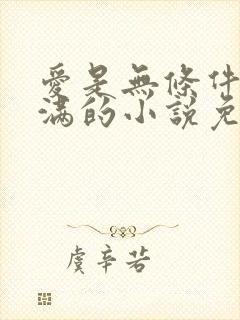 愛是無條件
滿的小說免
虞辛若